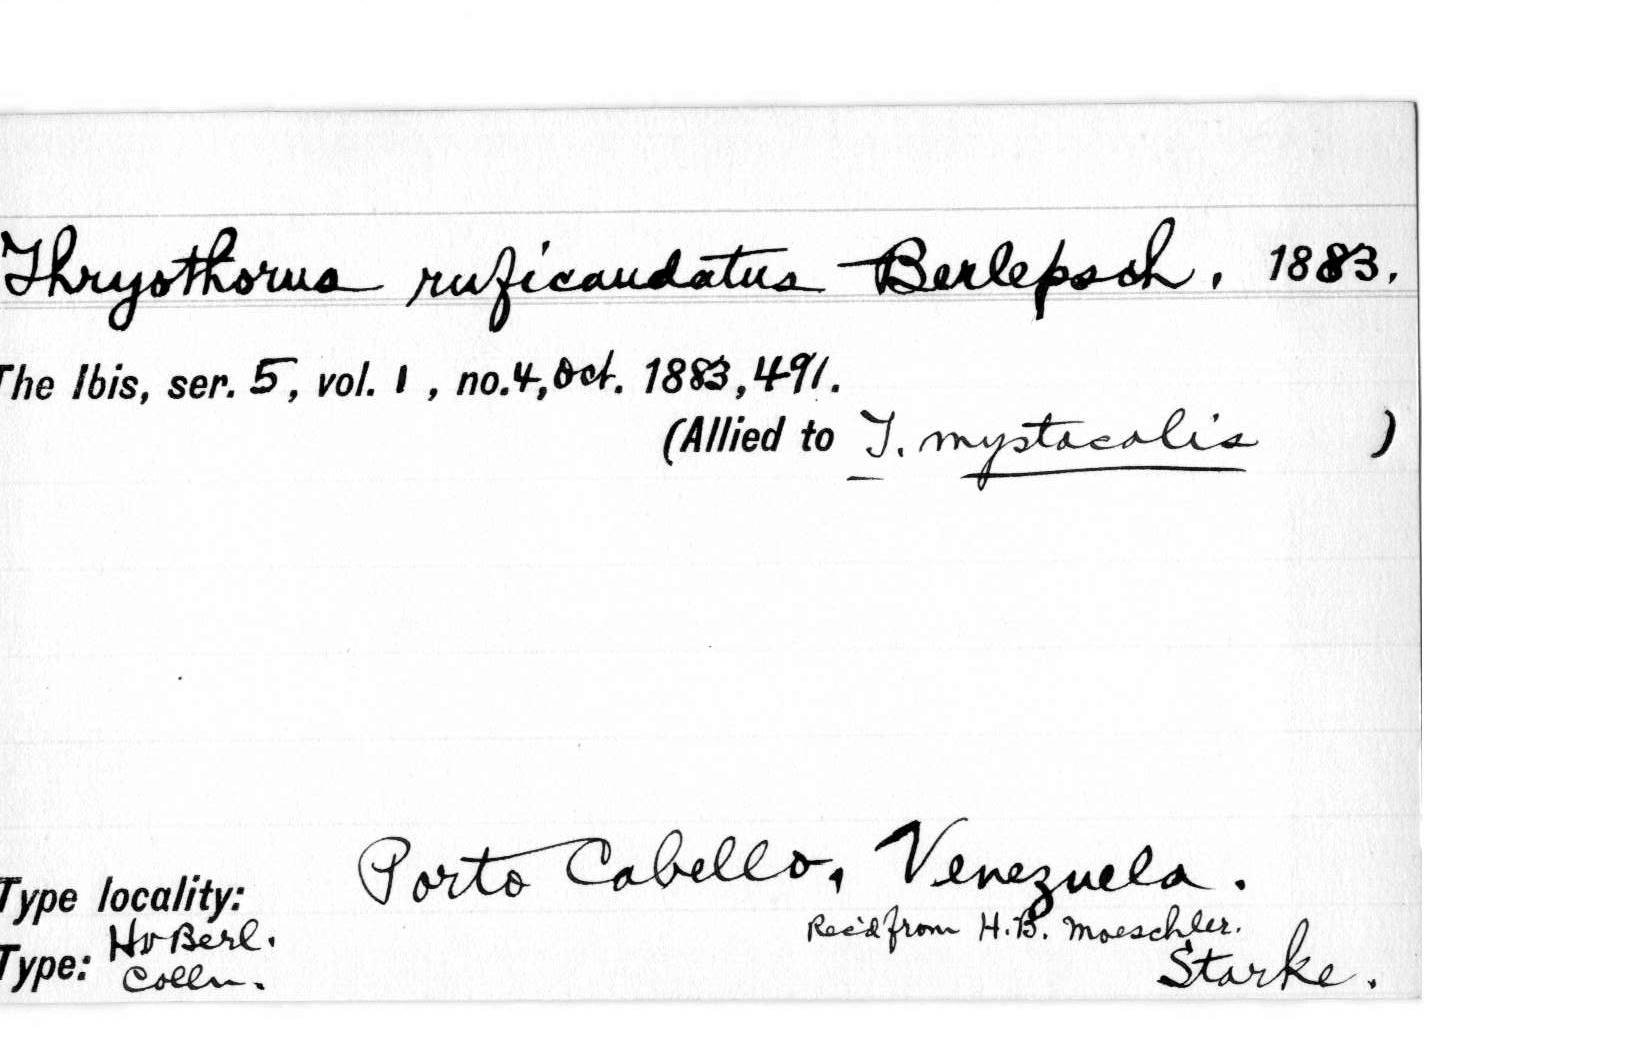 Thryothorus ruficaudatus Berlepsch, 1883.
The Ibis, ser. 5, vol. 1, no. 4, Oct. 1883, 491.
(Allied to T. mystacalis )
Type locality: Porto Cabello, Venezuela.
Rec'd from H. B. Moeschler.
Type: Hv Berl. Colln.
Starke.